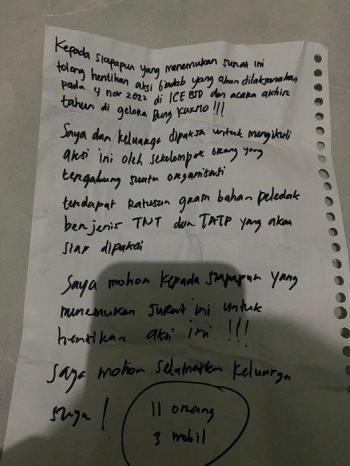 Kepada siapapun yang menemukan surat ini
tolong hentikan aksi biadab yang akan dilaksanakan
pada 4 nov 2022 di ICE BSD dan acara akhir
tahun di gelora Bung Karno !!!
Saya dan keluarga dipaksa untuk mengikuti
aksi ini oleh sekelompok orang yang
tergabung suatu organisasi
terdapat ratusan gram bahan peledak
berjenis TNT dan TATP yang akan
siap dipakai
Saya mohon kepada siapapun yang
menemukan surat ini untuk
hentikan aksi ini !!!
saya mohon selamatkan keluarga
saya !
11 orang
3 mobil